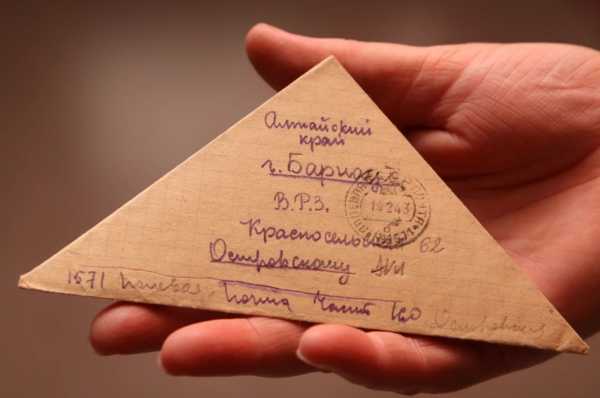 Алтайский
край
г. Барнаул
В.Р.З.
Красносельская 62
Островскому
1571 Полевая Почта Часть 160